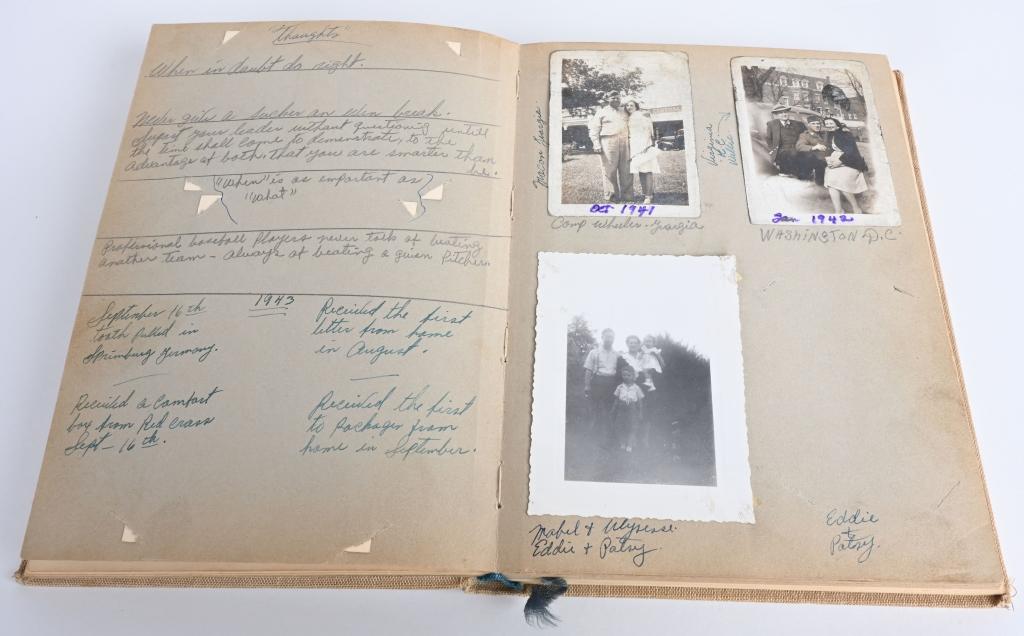 "Thoughts"
When in doubt do right.
Never give a sucker an even break.
Suport your leader without questioning untill
the time shall come to demonstrate, to the
advantage of both, that you are smarter than
he.
"When" is as important as
"What"
Professional baseball players never talk of beating
another team - always of beating a given Pitcher.
1943
September 16th
tooth pulled in
Germany.
Recieved the first
letter from home
in August.
Recieved a comfort
box from Red Cross
Sept - 16th.
Recieved the first
to Packages from
home in September.
Macon Georgia
Oct 1941
Camp Wheeler - Georgia
Virginia
Jan 1942
WASHINGTON D.C.
Mabel & Ulysesse.
Eddie + Patsy.
Eddie
+
Patsy.